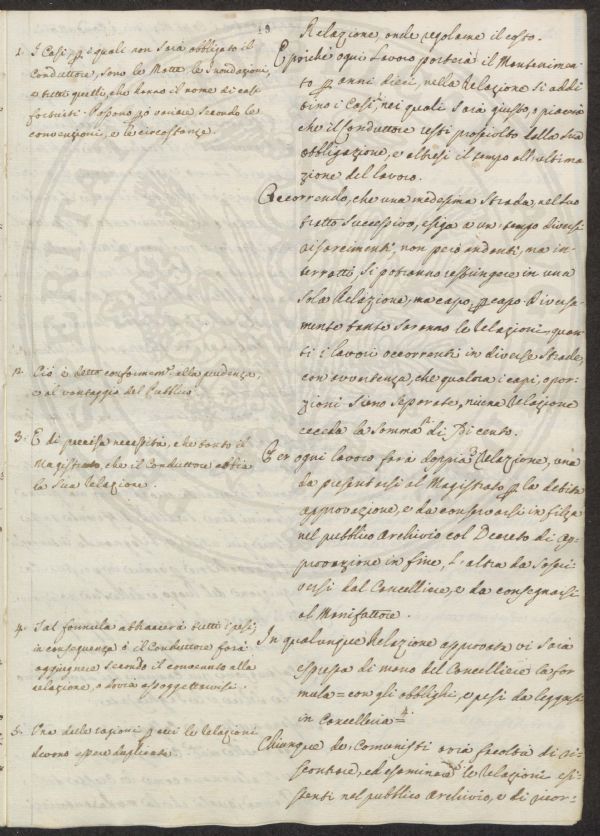 19
Relazione, onde regolarne il costo.
E poichè ogni Lavoro porterà il Mantenimen-
to per anni dieci, nella Relazione si addi
tino i Casi,¹ nei quali sarà giusto, o piacerà
che il Conduttore resti prosciolto dalla sua
obbligazione, e altresì il tempo all'ultima-
zione del lavoro.
Occorrendo, che una medesima Strada, nel suo
tratto successivo, esiga a un tempo diversi
risarcimenti, non però andanti, ma in-
terrotti, si potranno ristringere in una
sola Relazione, ma capo, per capo. Diversa-
mente tante saranno le Relazioni, quan-
ti i lavori occorrenti in diverse Strade
con avvertenza, che qualora i capi, o por-
zioni sieno separate, niuna Relazione
ecceda la somma² di cento.
Per ogni lavoro farà doppia³ Relazione, una
da presentarsi al Magistrato per la debita
approvazione, e da conservarsi in filza
nel pubblico Archivio col Decreto di ap-
provazione in fine, l'altra da sotto
scriversi dal Cancelliere, e da consegnarsi
al Manifattore.
In qualunque Relazione approvata vi sarà
espressa di mano del Cancelliere la for
mula = con gli obblighi, e pesi da leggersi
in Cancelleria =⁴
Chiunque de' Comunisti avrà facoltà di ri-
scontrare, ed esaminare⁵ le Relazioni esi-
stenti nel pubblico Archivio, e di ricor-
1. I Casi, per i quali non sarà obbligato il
Conduttore, sono le Motte, le Inondazioni,
e tutti quelli, che hanno il nome di casi
fortuiti. Possono però variare secondo le
convenzioni, e le circostanze.
2. Ciò è detto conformem.e alla prudenza,
e al vantaggio del Pubblico
3. È di precisa necessità, che tanto il
Magistrato, che il Conduttore abbia
la sua Relazione.
4. Tal formula abbraccerà tutti i pesi,
in conseguenza o il Conduttore farà
aggiugnere secondo il convenuto alla
relazione, o dovrà assoggettarvisi.
5. Una delle ragioni per cui le Relazioni
devono essere duplicate